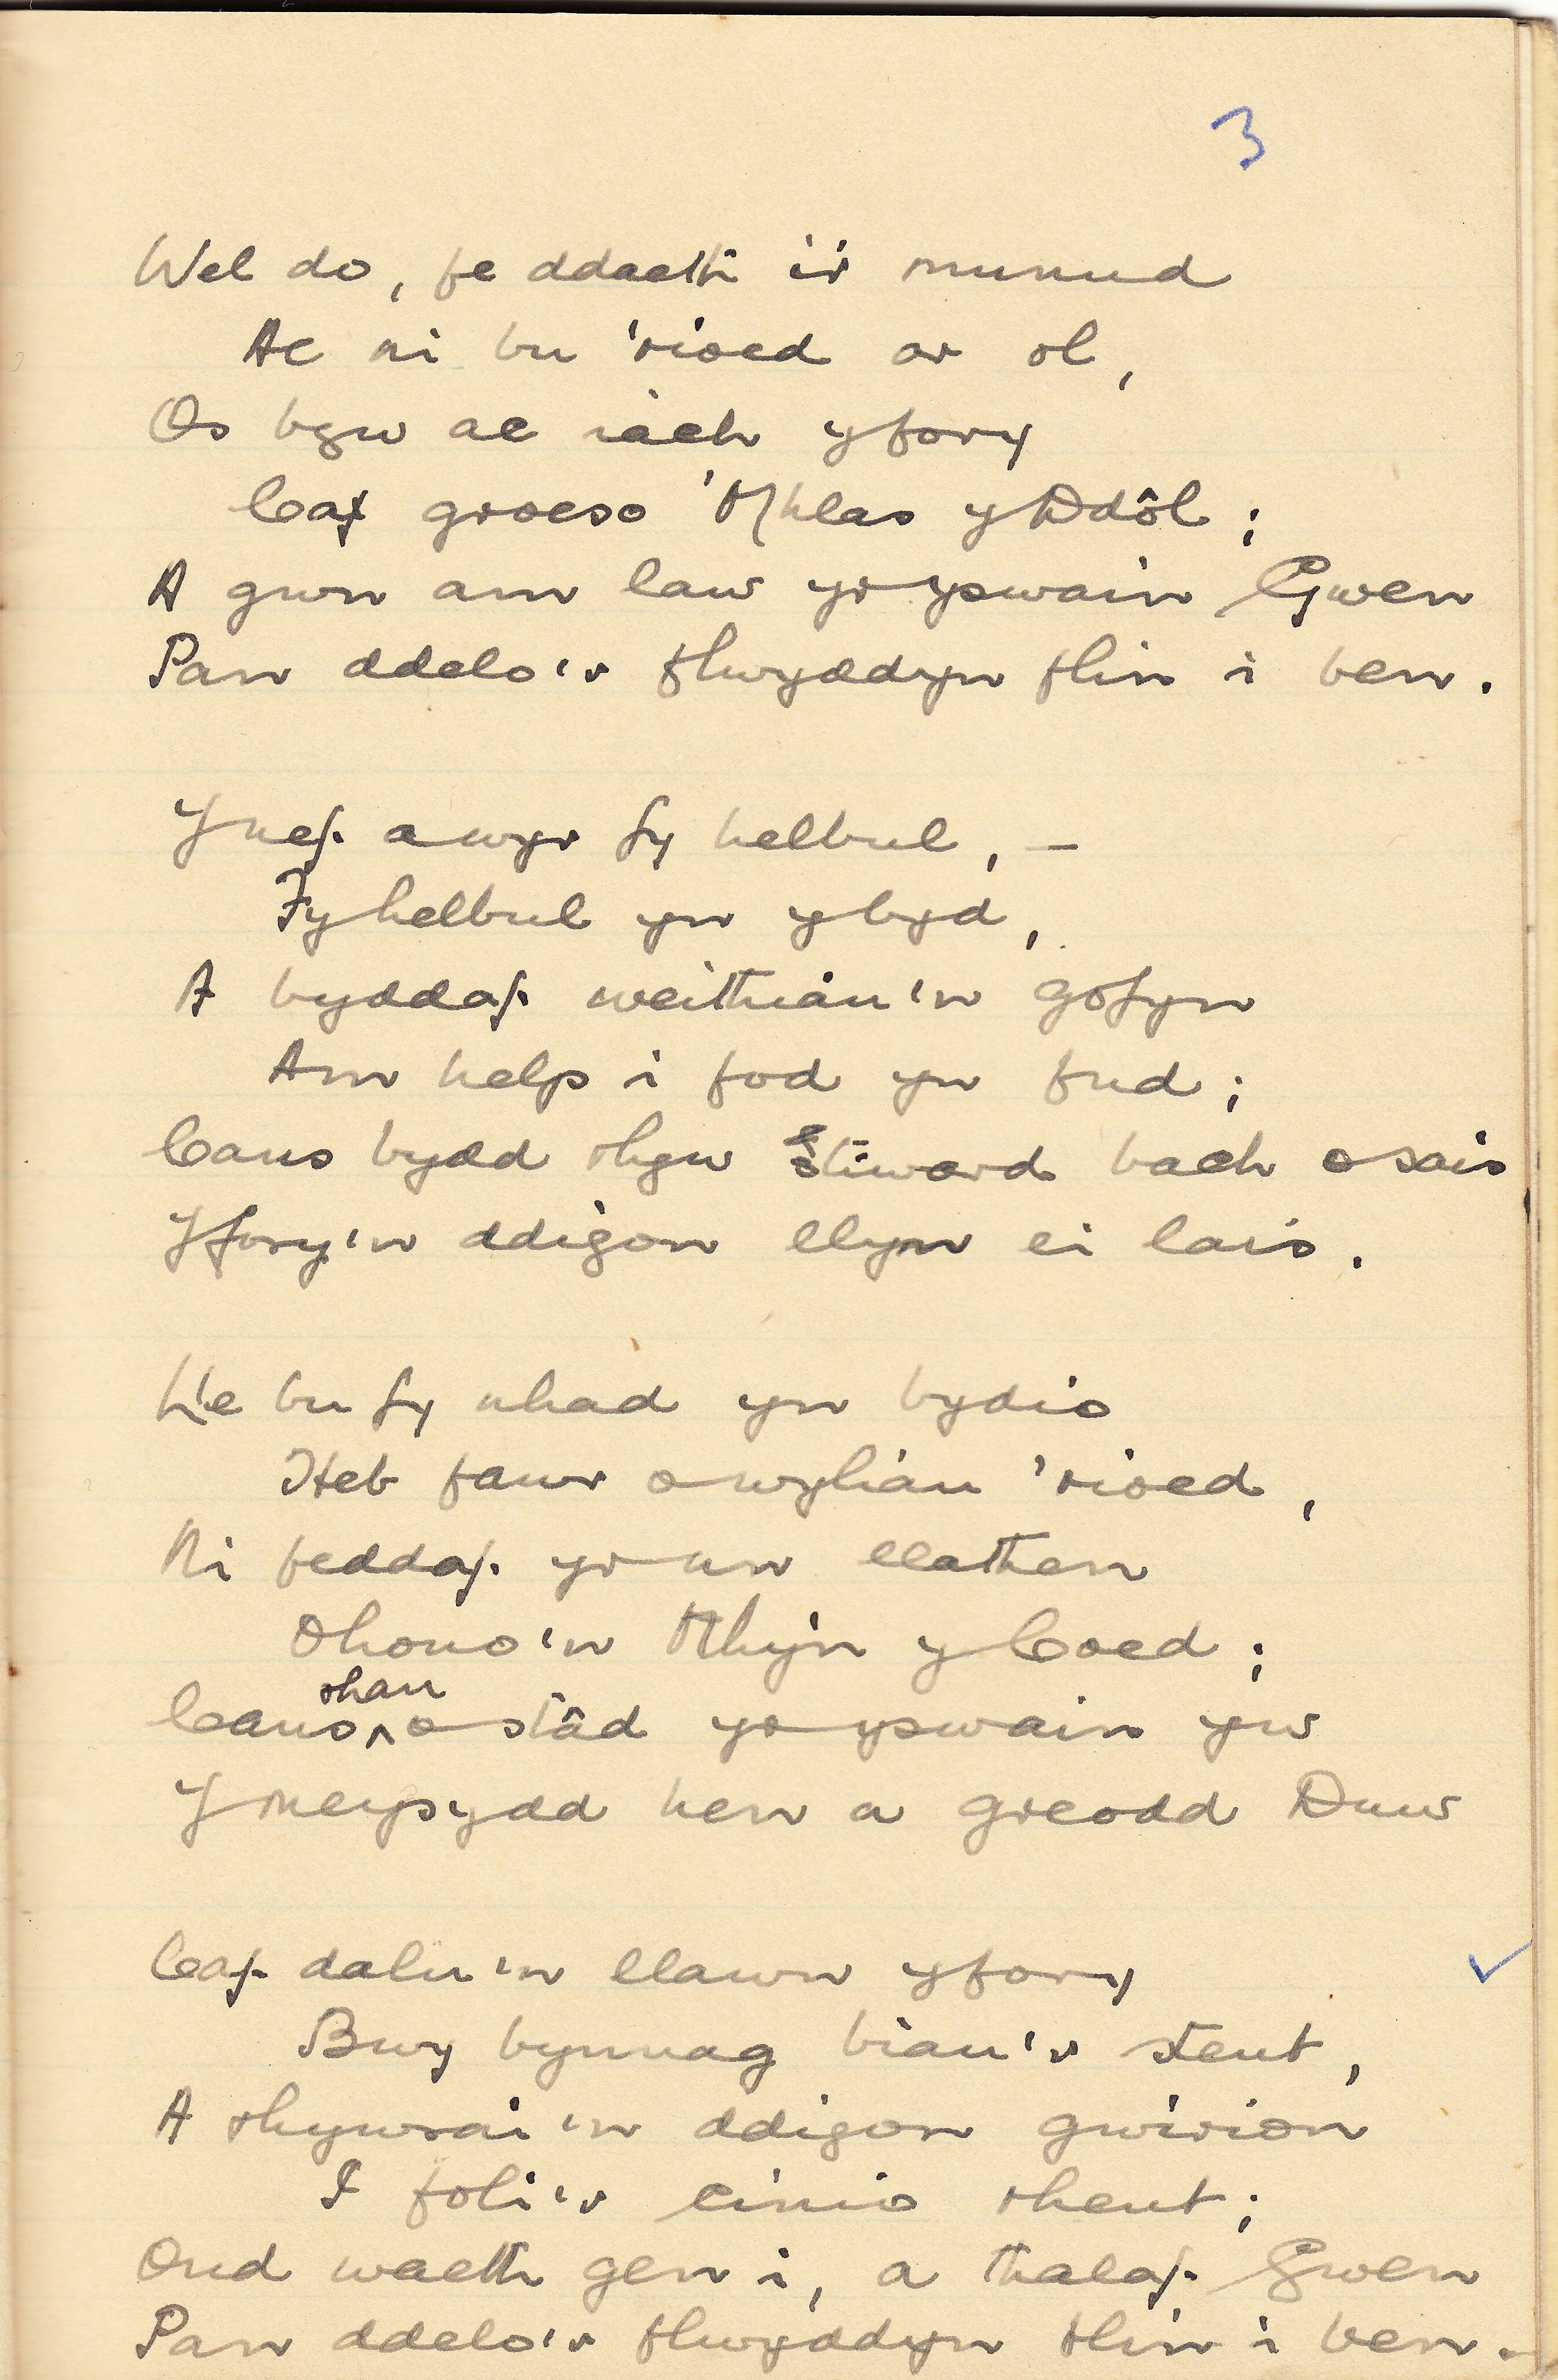 3
Wel do, fe ddaeth i'r munud
Ac ni bu 'rioed ar ol,
Os byw ac iach yfory
Caf groeso 'Mhlas y Ddôl;
A gwn am law yr yswain Gwen
Pan ddelo'r flwyddyn flin i ben.
Y nef a wyr fy helbul, –
Fy helbul yn y byd,
A byddaf weithiau'n gofyn
Am help i fod yn fud;
Cans bydd rhyw stiward bach o sais
Yfory'n ddigon llyn ei lais.
Lle bu fy nhad yn bydio
Heb fawr o wyliau 'rioed,
Ni feddaf yr un llathen
Ohono'n Mhlyn y Coed;
Cans rhan o stâd yr yswain yw
Y meysydd hen a greodd Duw
Caf dalu'n llawn yfory
Bwy bynnag biau'r stent,
A rhywrai'n ddigon gwirion
I foli'r cinio rhent;
Ond waeth gen i, a thalaf Gwen
Pan ddelo'r flwyddyn flin i ben.